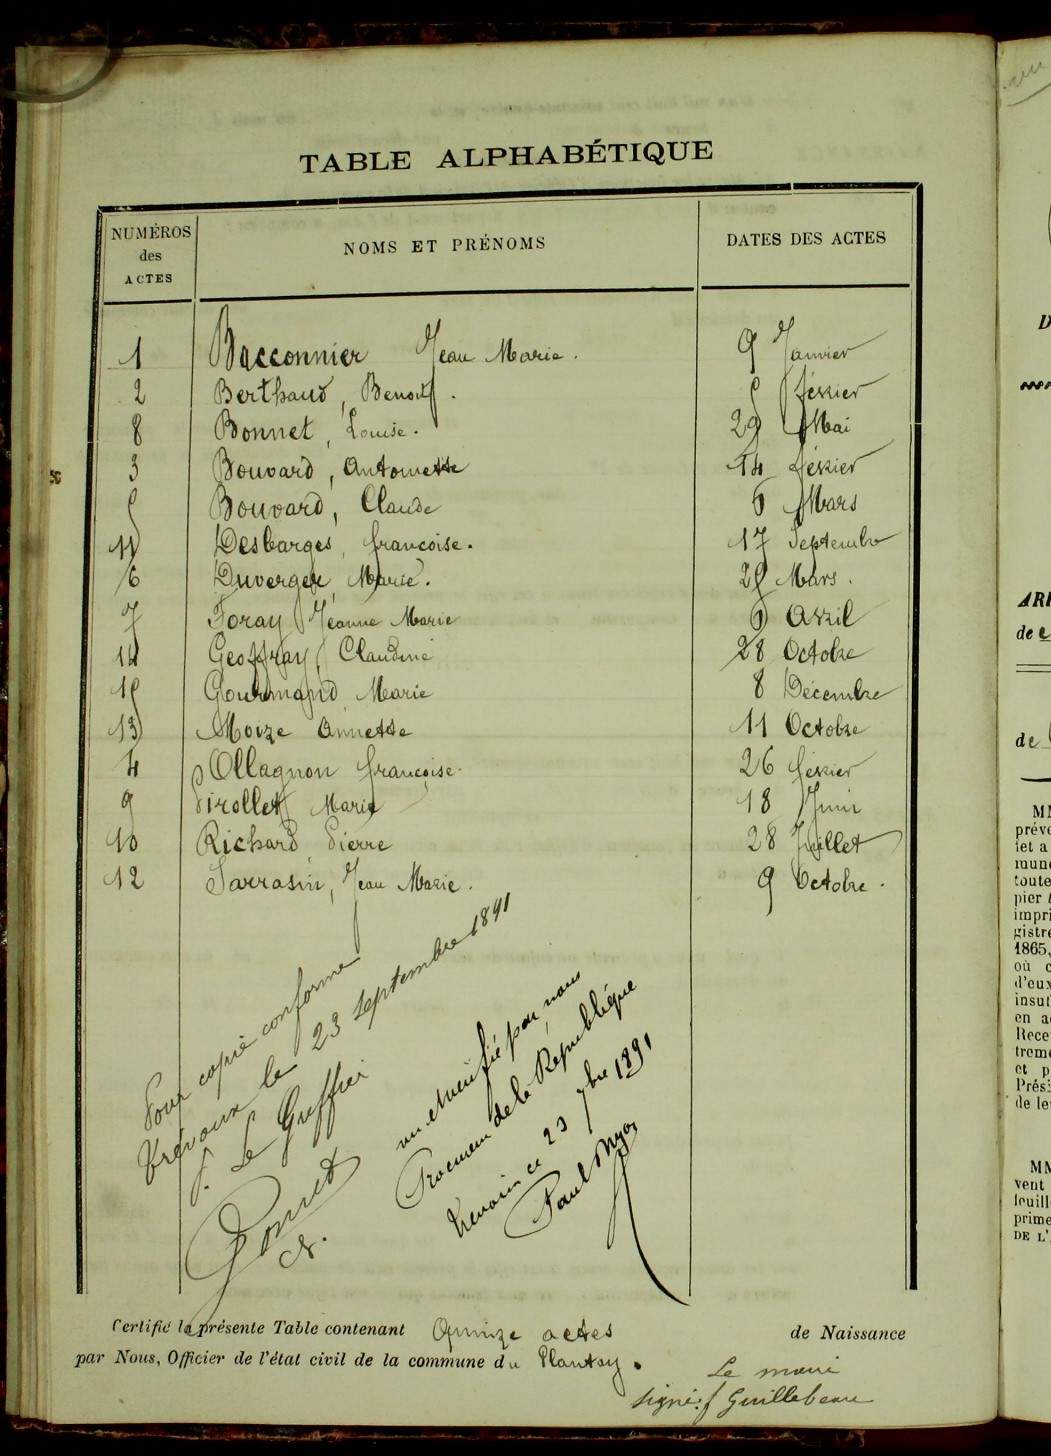 TABLE ALPHABÉTIQUE
NUMÉROS des ACTES NOMS ET PRÉNOMS DATES DES ACTES
1 Bacconnier Jean Marie. 9 Janvier
2 Berthaud, Benoit. 5 février
8 Bonnet, Louise. 29 Mai
3 Bouvard, Antoinette 14 février
5 Bouvard, Claude 6 Mars
11 Desbarges, françoise. 17 Septembre
6 Duverger, Marie. 25 Mars.
7 Foray Jeanne Marie 6 Avril
14 Geoffray, Claudine 28 Octobre
15 Gourmand Marie 8 Décembre
13 Moize Annette 11 Octobre
4 Ollagnon françoise. 26 février
9 Pirollet Marie 18 Juin
10 Richard, Pierre 28 Juillet
12 Sarrasin, Jean Marie. 9 Octobre.
Pour copie conforme
Trévoux le 23 Septembre 1891
Le Greffier
vu et vérifié par nous
Procureur de la République
Trévoux ce 23 7bre 1891
Paul
Certifié la présente Table contenant Quinze actes de Naissance
par Nous, Officier de l'état civil de la commune du Plantay.
Le maire
signé: Guillebeau
de
de
MM
et a
toute
1865,
où
en
et p
de le
MM
vent
DE L'